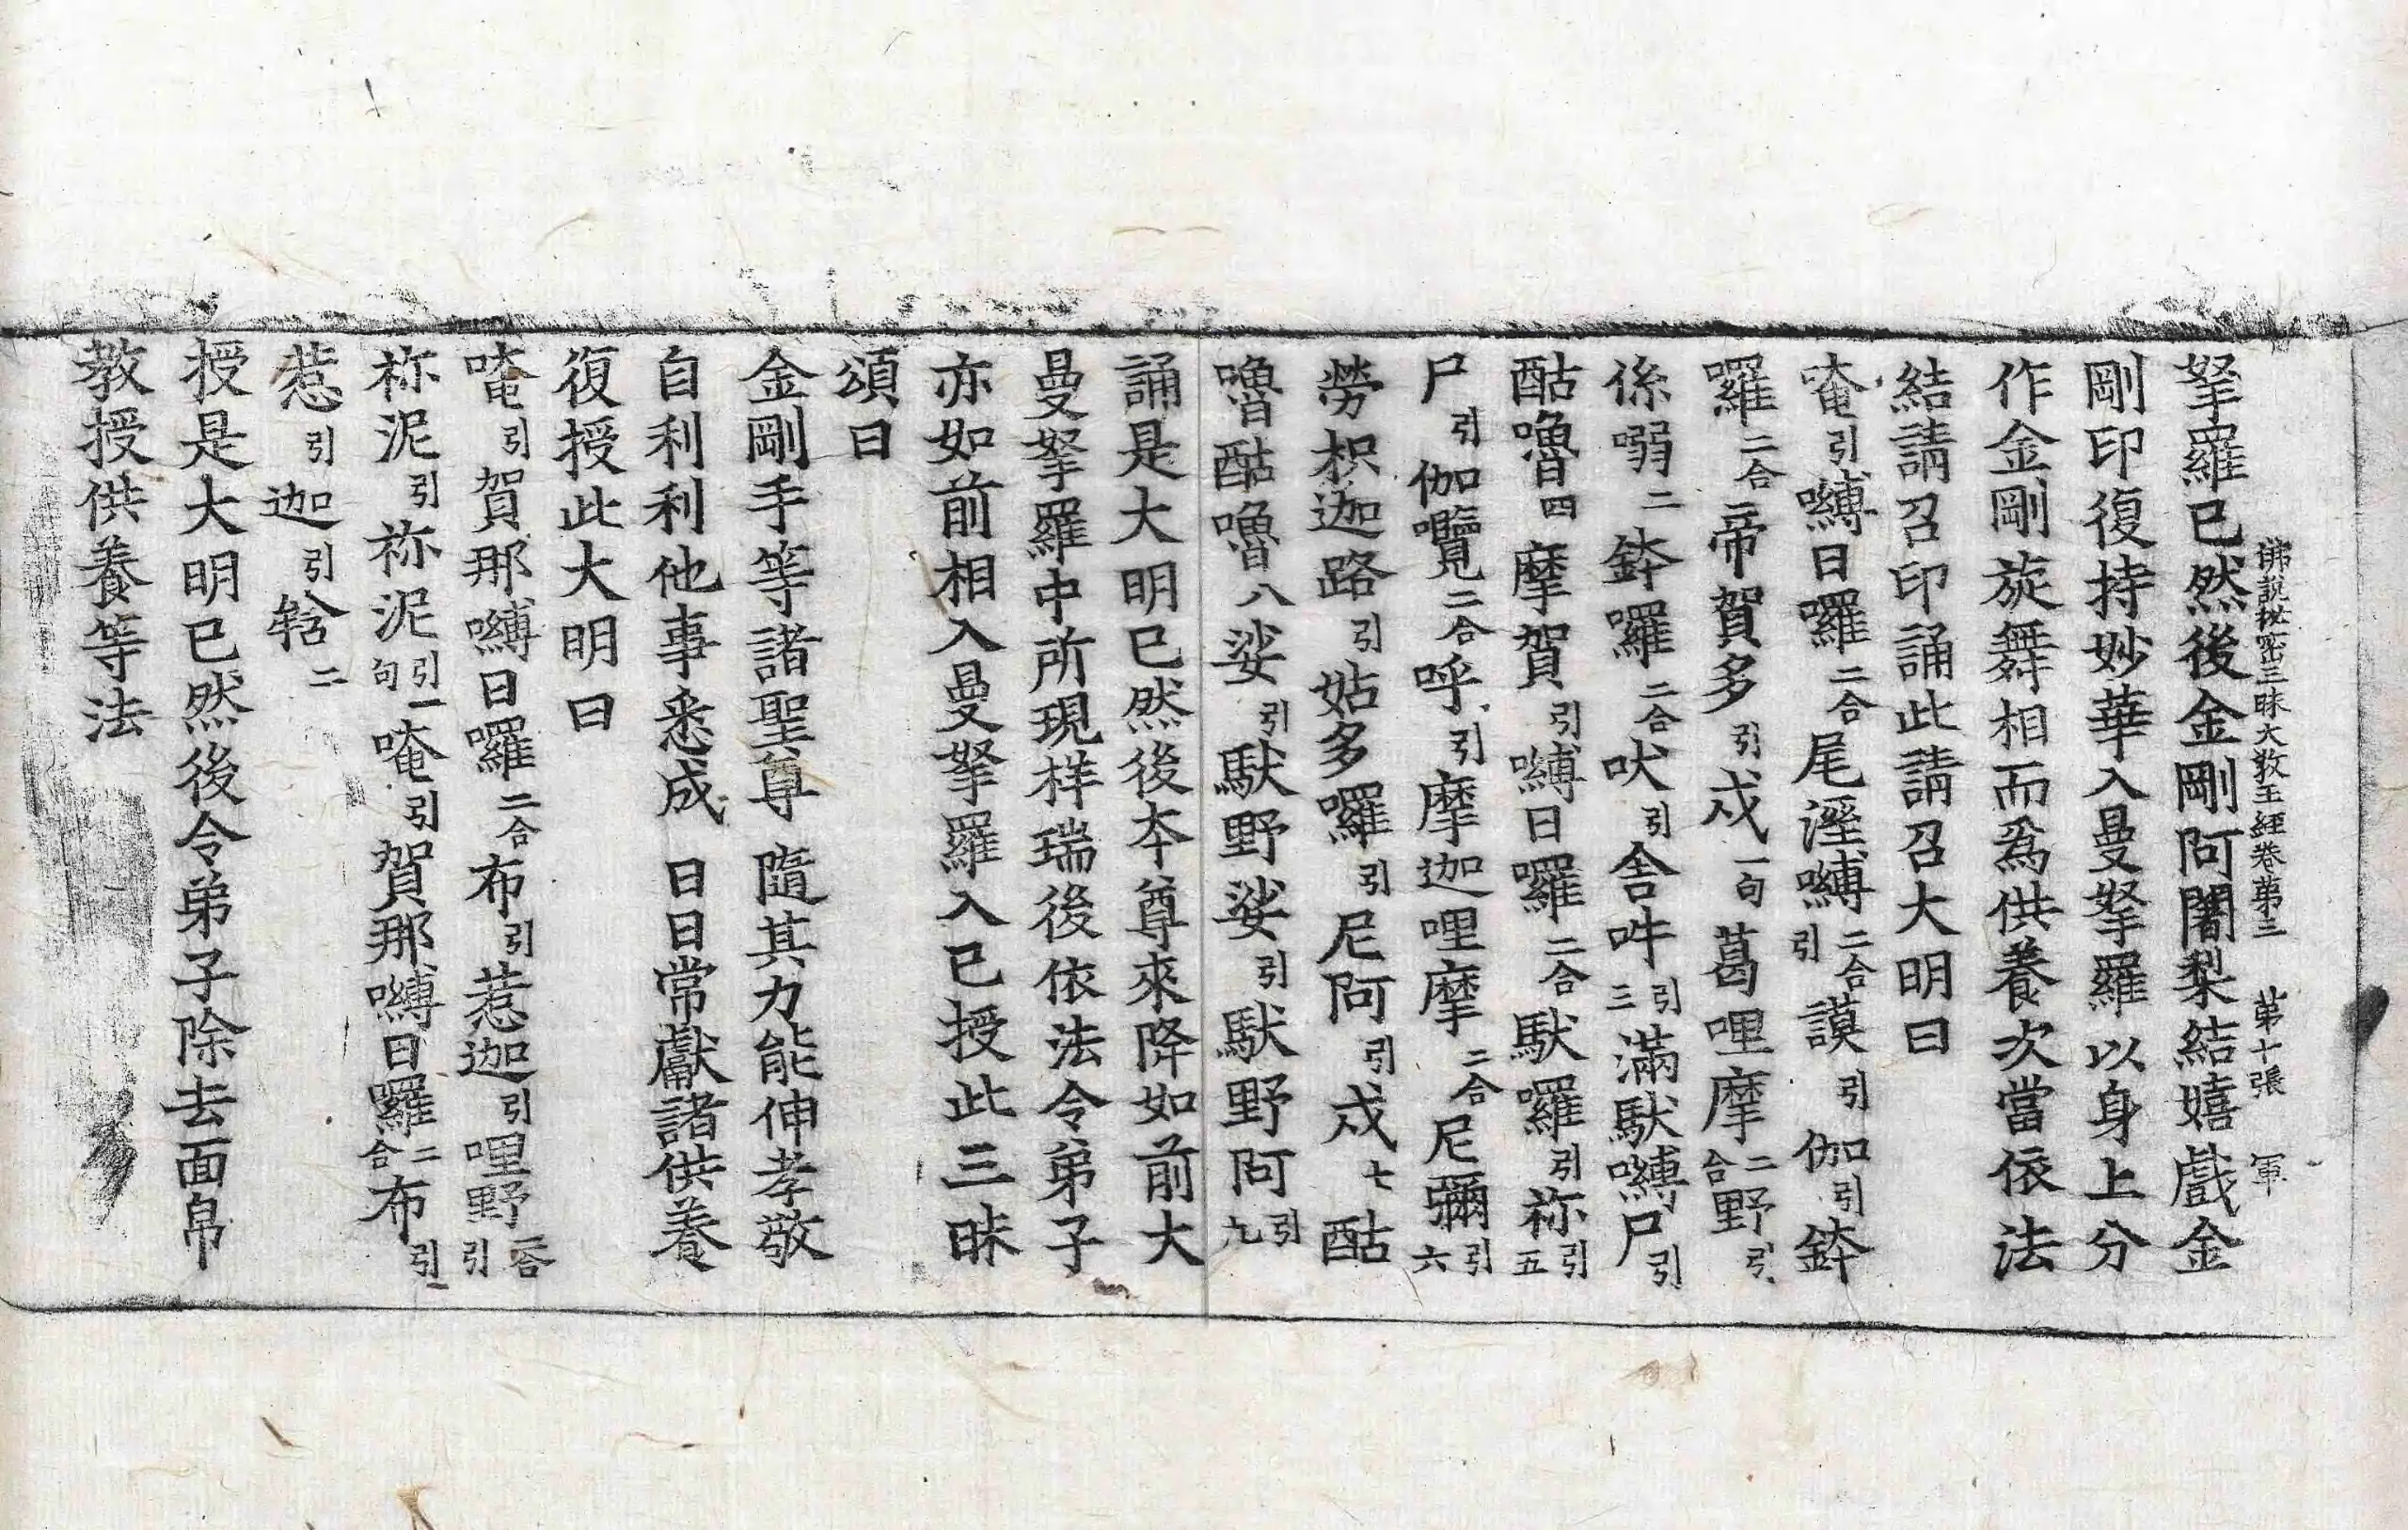 佛說秘密三昧大教王經卷第三　第十張　軍
拏羅已然後金剛阿闍梨結嬉戲金
剛印復持妙華入曼拏羅以身上分
作金剛旋舞相而爲供養次當依法
結請召印誦此請召大明曰
唵引嚩日囉二合尾溼嚩二合引謨引伽引鉢
囉二合帝賀多引戍一句葛哩摩二合野引
係嗍二鉢囉二合吠引舍吽引三滿馱嚩尸引
酤嚕四摩賀引嚩日囉二合馱囉引祢引五
尸引伽囕二合呼引摩迦哩摩二合尼彌引六
勞枳迦路引姑多囉引尼阿引戍七酤
嚕酤嚕八娑引馱野娑引馱野阿引九
誦是大明已然後本尊來降如前大
曼拏羅中所現祥瑞後依法令弟子
亦如前相入曼拏羅入已授此三昧
頌曰
金剛手等諸聖尊　隨其力能伸孝敬
自利利他事悉成　日日常獻諸供養
復授此大明曰
唵引賀那嚩日囉二合布引惹迦引哩野二合引
祢泥引祢泥引一句唵引賀那嚩日囉二合布引
惹引迦引轄二
授是大明已然後令弟子除去面帛
教授供養等法